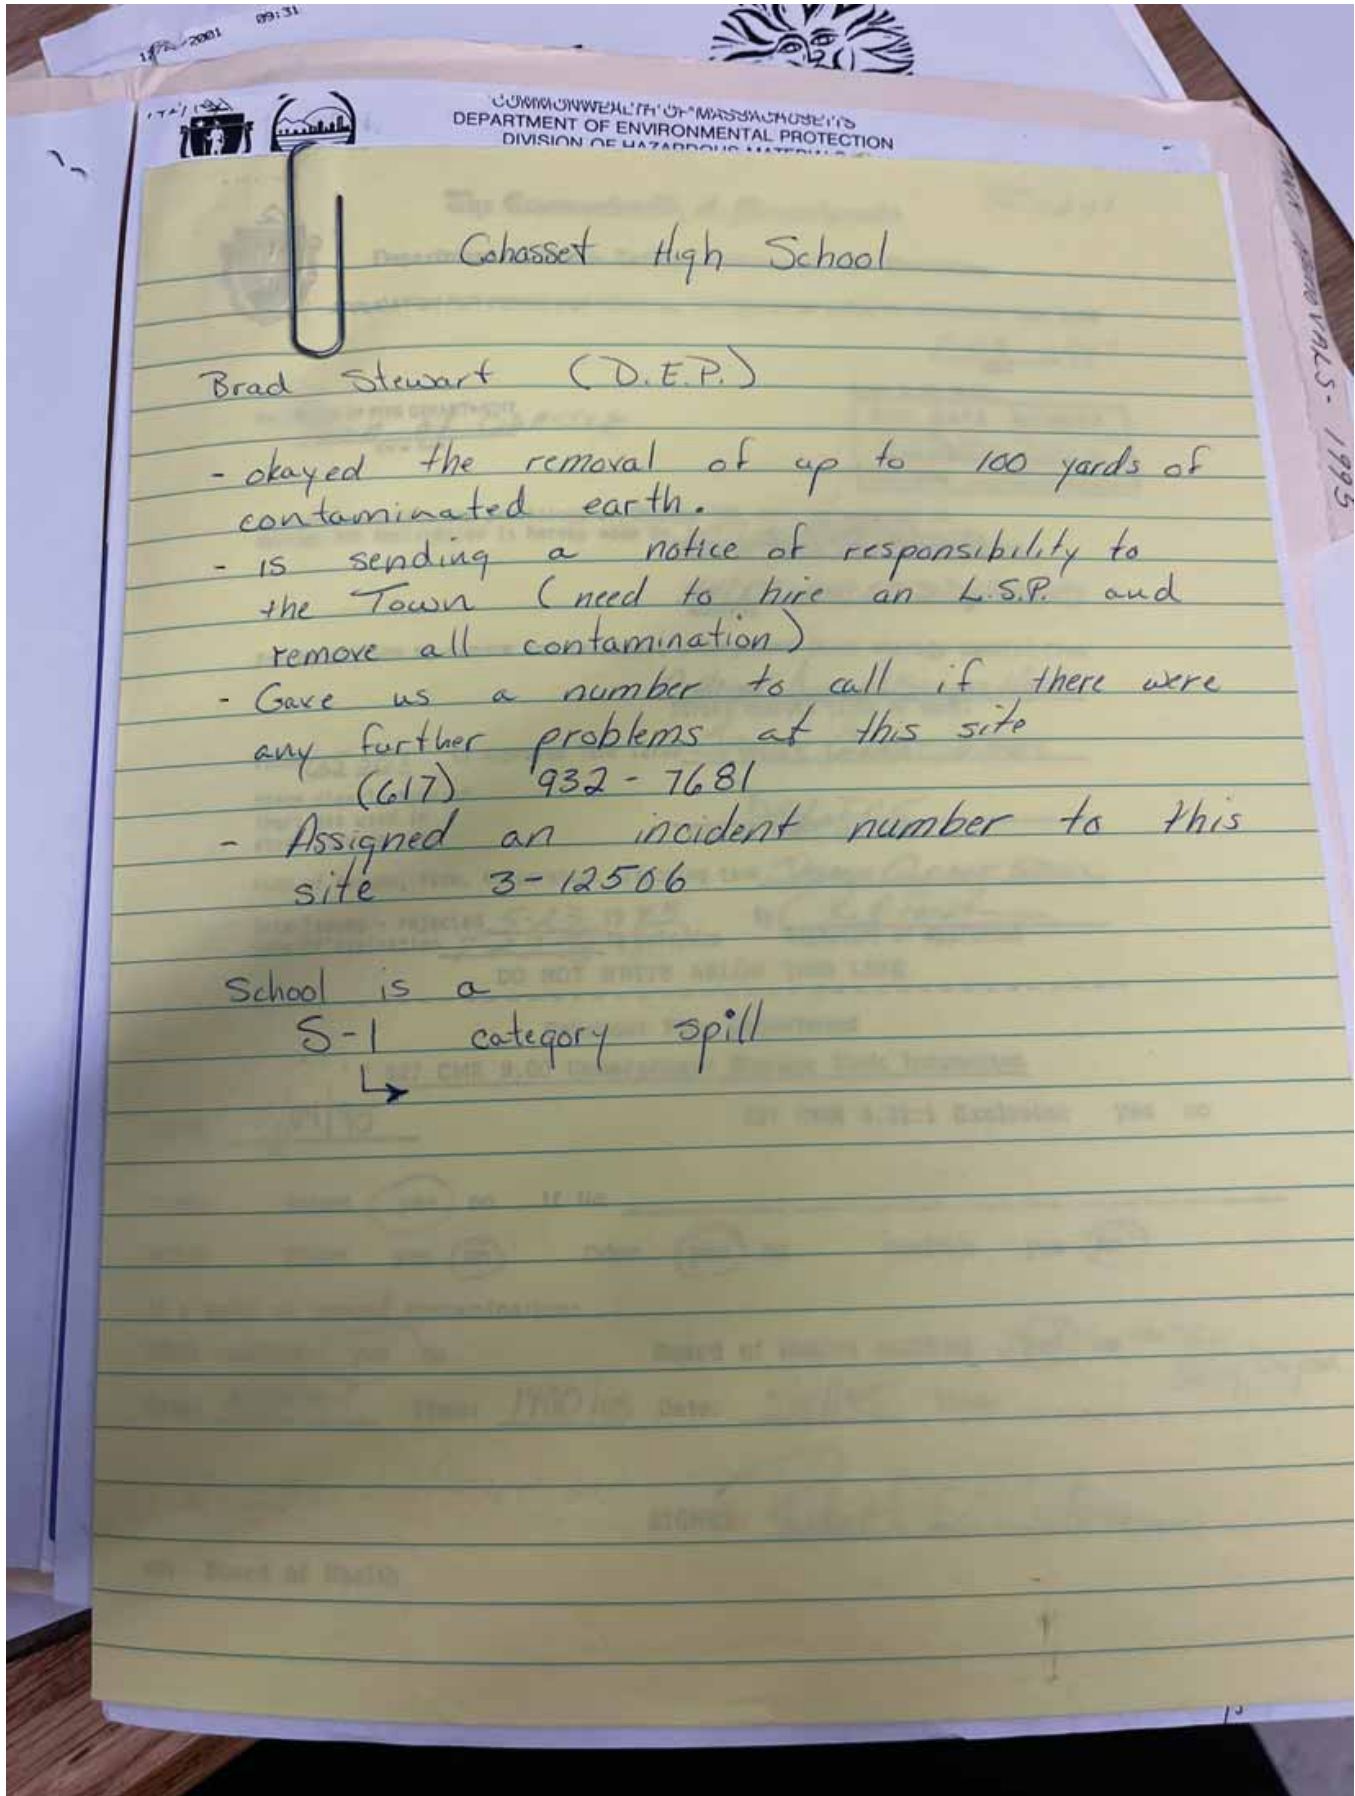 09:31
2001
COMMONWEALTH OF MASSACHUSETTS
DEPARTMENT OF ENVIRONMENTAL PROTECTION
DIVISION OF HAZARDOUS MATERIALS
REMOVALS - 1993
Cohasset High School
Brad Stewart (D.E.P.)
- okayed the removal of up to 100 yards of
contaminated earth.
- is sending a notice of responsibility to
the Town (need to hire an L.S.P. and
remove all contamination)
- Gave us a number to call if there were
any further problems at this site
(617) 932-7681
- Assigned an incident number to this
site 3-12506
School is a
S-1 category spill
↳
DO NOT WRITE BELOW THIS LINE
Board of Health